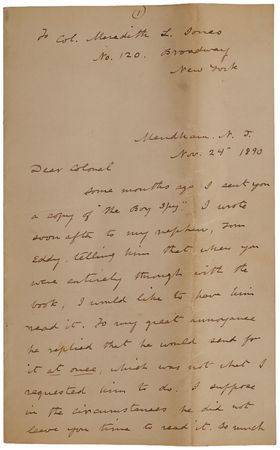 ①
To Col. Meredith L. Jones
No. 120. Broadway
New York
Mendham. N. J.
Nov. 25 1890
Dear Colonel
Some months ago I sent you
a copy of "The Boy Spy". I wrote
soon after to my nephew, Tom
Eddy, telling him that when you
were entirely through with the
book, I would like to have him
read it. To my great annoyance
he replied that he would send for
it at once, which was not what I
requested him to do. I suppose
in the circumstances he did not
leave you time to read it. So much